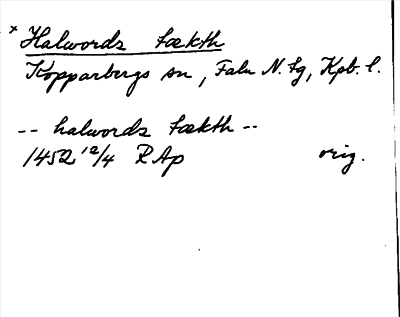 × Halwords tækth
Kopparbergs sn, Falu N. tg, Kpb. l.
-- halwords tækth --
1452 12/4 RAp orig.